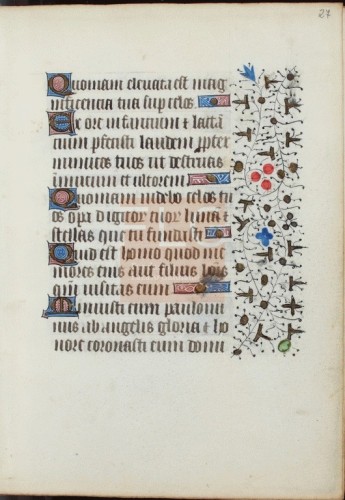 27
Quoniam elevata est mag
nificencia tua sup celos.
Ex ore infantium et lactā
cium pfecisti laudem ꝓpter
inimicos tuos ut destruas
inimicum et ultorem
Quoniam videbo celos tu
os oꝑa digitoꝝ tuoꝝ lunā et
stellas que tu fundasti
Quid est homo quod me
mores eius aut filius hoīs
qm̄ visitas eum
Minuisti eum paulomi
nus ab angelis gloria et ho
nore coronasti eum